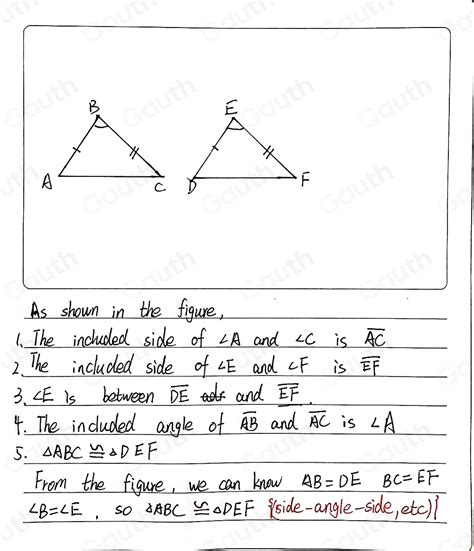 B
E
A
C
D
F
As shown in the figure,
1. The included side of ∠A and ∠C is A̅C̅
2. The included side of ∠E and ∠F is E̅F̅
3. ∠E is between D̅E̅ and E̅F̅.
4. The included angle of A̅B̅ and A̅C̅ is ∠A
5. △ABC ≌ △DEF
From the figure, we can know AB=DE BC=EF
∠B=∠E, so △ABC ≌ △DEF {(side-angle-side, etc)}
Gauth